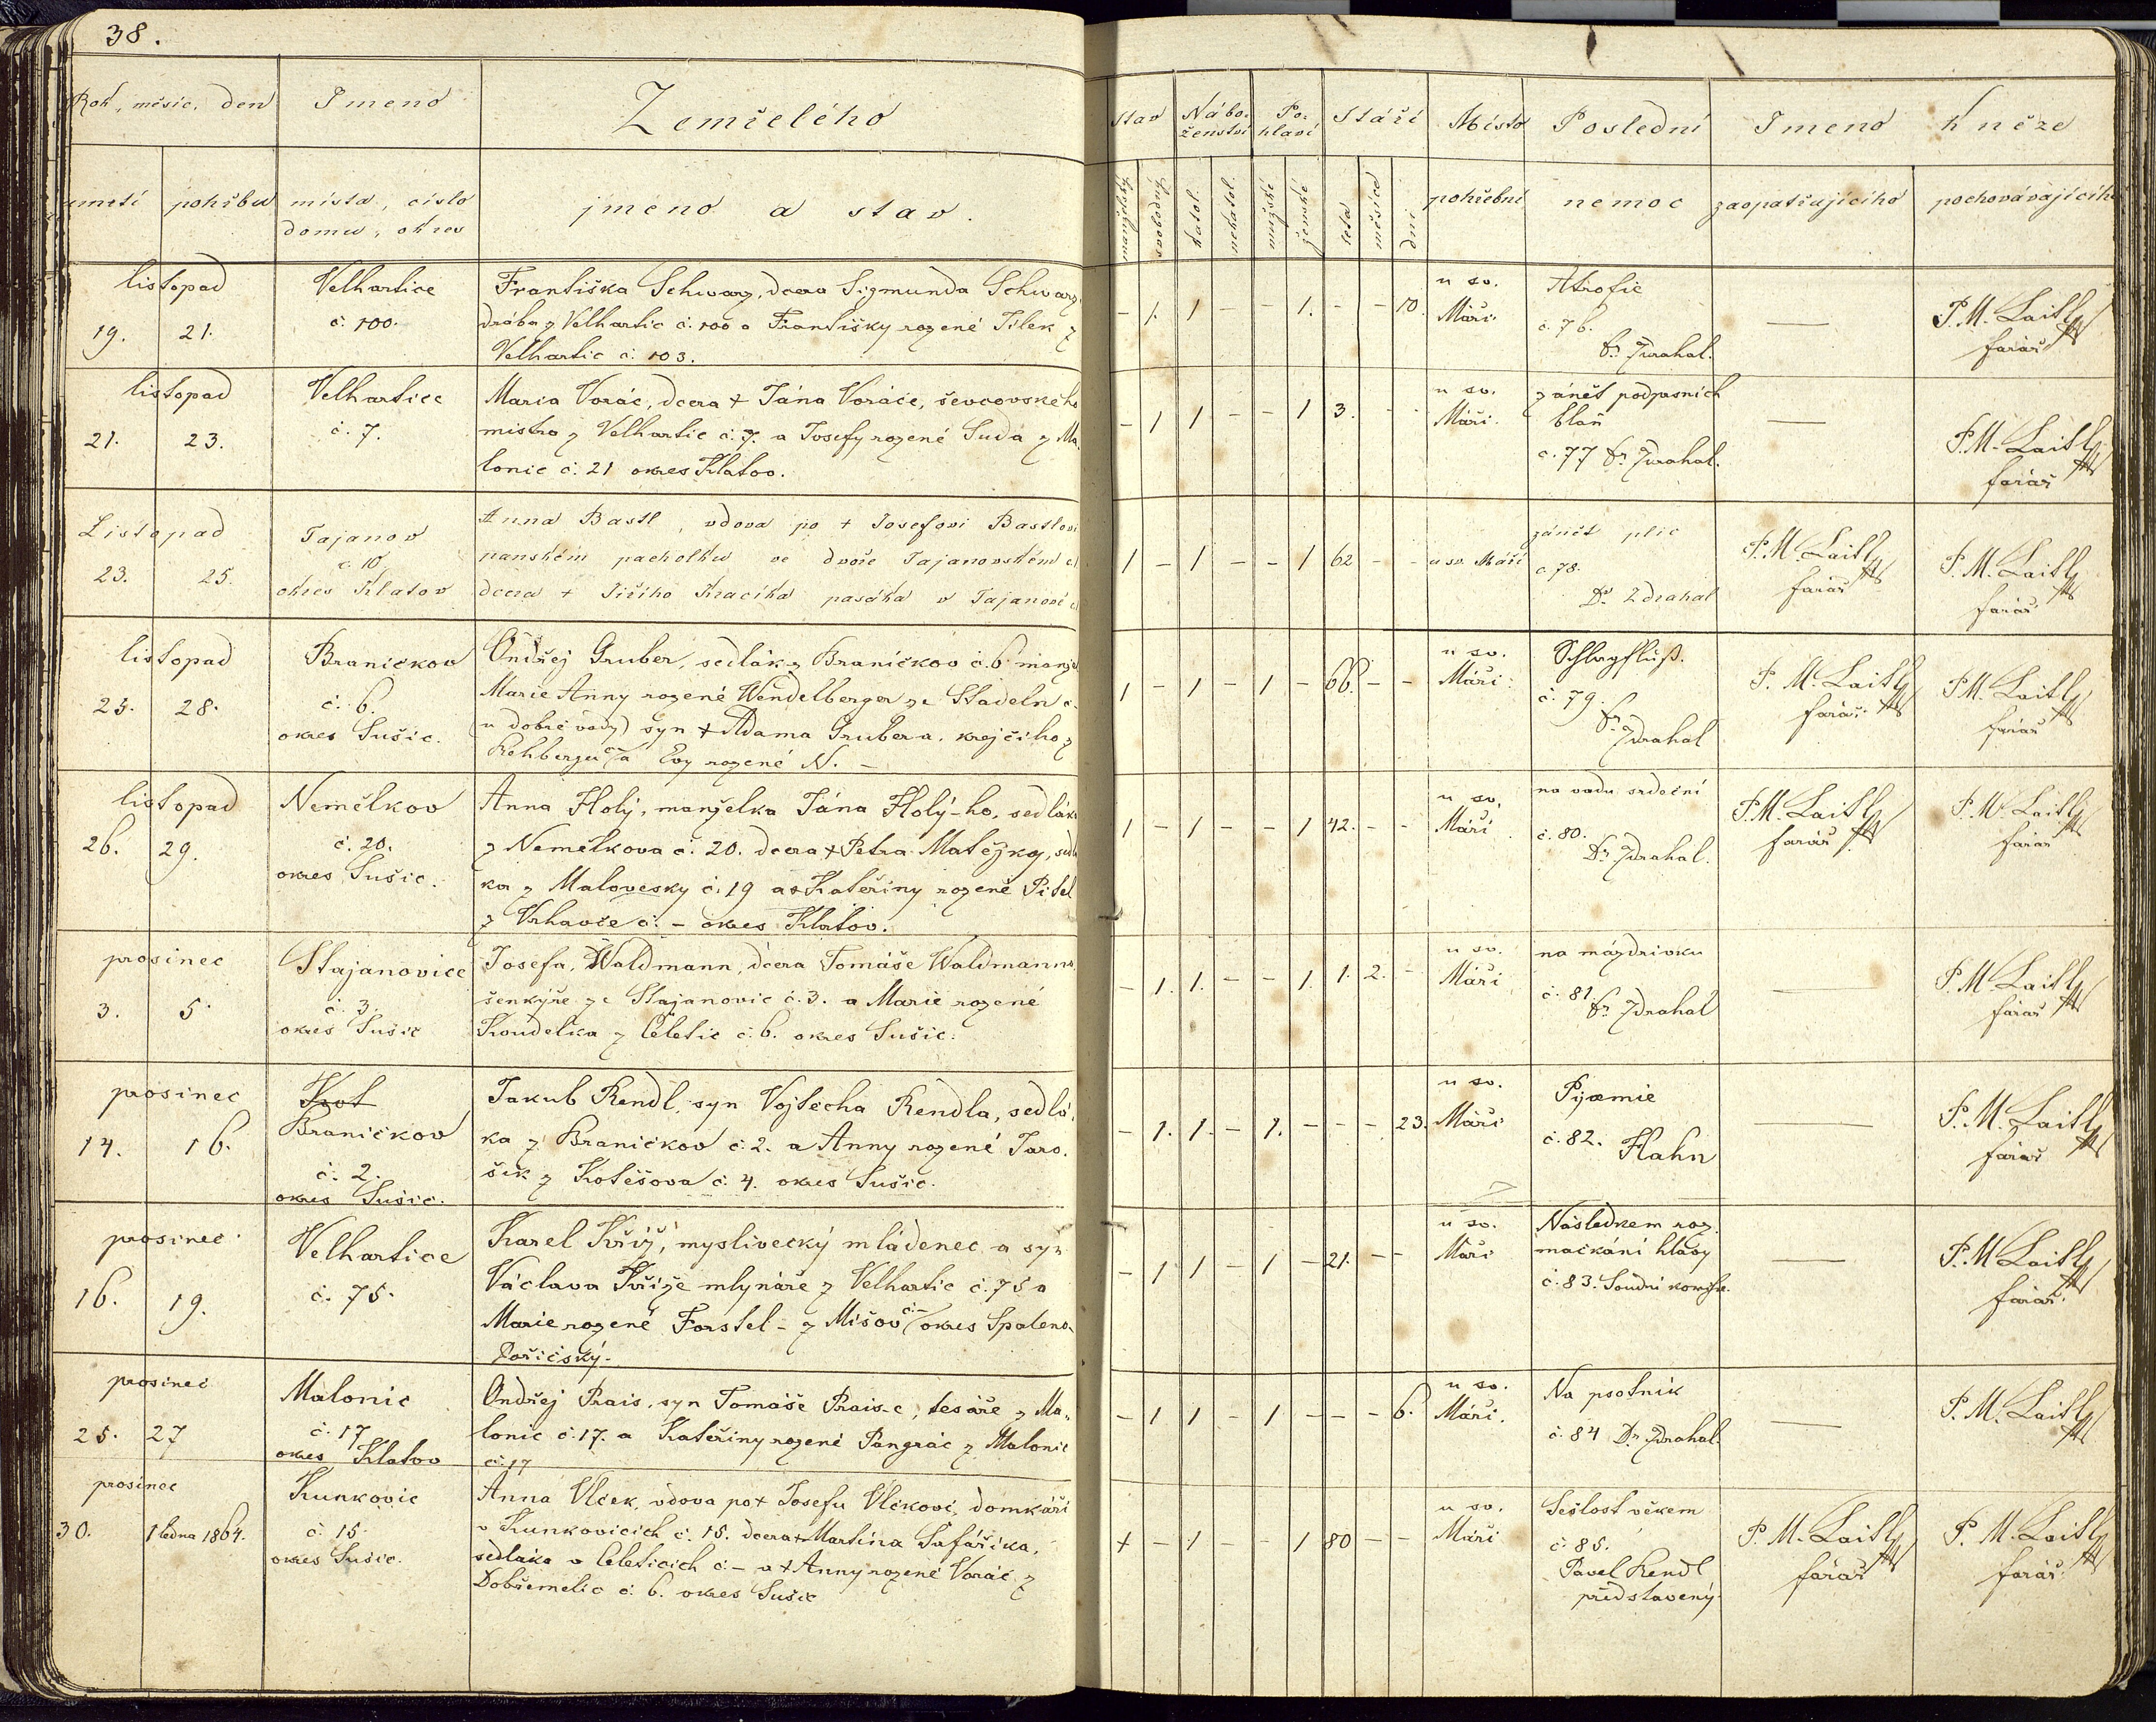 38.
Rok, měsíc, den
Jmeno
Zemřelého
umrtí
pohřbu
místa, číslo
domu, okres
jméno a stav.
Stav
Nábo-
ženství
Po-
hlaví
Stáří
Místo
Poslední
Jmeno
kněze
manželský
svobodný
katol.
nekatol.
mužské
ženské
leta
měsíce
dni
pohřební
nemoc
zaopatřujícího
pochovávajícího
listopad
19. 21.
Velhartice
č. 100.
Františka Schwarz, dcera Sigmunda Schwarz,
drába z Velhartic č. 100 a Františky rozené Jílek z
Velhartic č. 103.
- 1. 1 - - 1. - - 10.
u sv.
Máří.
Atrofie
č. 76.
Dr. Zdrahal.
—
P. M. Laitl
farář
listopad
21. 23.
Velhartice
č. 7.
Maria Voráč, dcera + Jána Voráče, ševcovského
mistra z Velhartic č. 7. a Josefy rozené Suda z Ma-
lonic č. 21 okres Klatov.
- 1 1 - - 1 3. - -
u sv.
Máří.
zánět podprsních
blan
č. 77 Dr. Zdrahal.
—
P. M. Laitl
farář
Listopad
23. 25.
Tajanov
č. 10
okres Klatov
Anna Bastl, vdova po + Josefovi Bastlovi
panském pacholku ve dvoře Tajanovském č.
dcera + Jiřího Kracíka pasáka v Tajanově č.
1 - 1 - - 1 62 - -
u sv. Máří
zánět plic
č. 78.
Dr. Zdrahal
P. M. Laitl
farář
P. M. Laitl
farář
listopad
25. 28.
Braníčkov
č. 6.
okres Sušic.
Ondřej Gruber, sedlák z Braníčkov č. 6 manžel
Marie Anny rozené Wendelberger ze Stadeln č.
(u dobré vody) syn + Adama Grubera, krejčího z
Rehbergu č.– a Evy rozené N. –
1 - 1 - 1 - 66. - -
u sv.
Máří.
Schlagfluß.
č. 79.
Dr.
Zdrahal
P. M. Laitl
farář
P. M. Laitl
farář
listopad
26. 29.
Nemělkov
č. 20.
okres Sušic.
Anna Holý, manželka Jána Holý-ho, sedlák
z Nemělkova č. 20. dcera + Petra Matějky, sedlá
ka z Malovesky č. 19 a + Kateřiny rozené Pitel
z Vrhavče č. – okres Klatov.
1 - 1 - - 1 42. - -
u sv.
Máří
na vadu srdeční
č. 80.
Dr. Zdrahal.
P. M. Laitl
farář
P. M. Laitl
farář
prosinec
3. 5.
Stajanovice
č. 3.
okres Sušic
Josefa, Waldmann, dcera Tomáše Waldmanna
šenkýře ze Stajanovic č. 3. a Marie rozené
Koudelka z Čeletic č. 6. okres Sušic.
- 1. 1. - - 1. 1. 2. -
u sv.
Máří
na mázdrivku
č. 81.
Dr. Zdrahal
—
P. M. Laitl
farář
prosinec
14. 16.
Braníčkov
č. 2.
okres Sušic.
Jakub Rendl, syn Vojtěcha Rendla, sedlá-
ka z Braníčkov č. 2. a Anny rozené Jaro-
šík z Kotěšova č. 4. okres Sušic.
- 1. 1. - 1. - - - 23.
u sv.
Máří
Pyæmie
č. 82. Hahn
—
P. M. Laitl
farář
prosinec
16. 19.
Velhartice
č. 75.
Karel Kříž, myslivecký mládenec a syn
Václava Kříže mlynáře z Velhartic č. 75 a
Marie rozené Forstel – z Míšov č.– okres Spaleno-
Poříčský.
- 1 1 - 1 - 21. - -
u sv.
Máří
Následkem roz-
mačkání hlavy
č. 83. Soudní komise.
—
P. M. Laitl
farář
prosinec
25. 27
Malonic
č. 17
okres Klatov
Ondřej Prais, syn Tomáše Prais-e, tesáře z Ma-
lonic č. 17. a Kateřiny rozené Pangrác z Malonic
č. 17
- 1 1 - 1 - - - 6.
u sv.
Máří.
Na psotník
č. 84 Dr. Zdrahal.
—
P. M. Laitl
prosinec
30. 1 ledna 1864.
Kunkovic
č. 15.
okres Sušic.
Anna Vlček, vdova po + Josefu Vlčkovi, domkáři
v Kunkovicích č. 15. dcera + Martina Šafáříka,
sedláka v Čeleticích č. – a + Anny rozené Voráč z
Dobřemelic č. 6. okres Sušic
+ - 1 - - 1 80 - -
u sv.
Máří
Sešlost věkem
č. 85.
Pavel Rendl
představený
P. M. Laitl
farář
P. M. Laitl
farář.